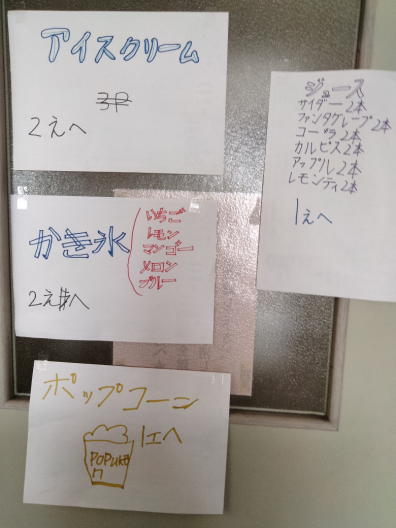 アイスクリーム
2えへ
かき氷
いちご
レモン
マンゴー
メロン
ブルー
2えへ
ポップコーン
1エへ
POPUKO
ジュース
サイダー2本
ファンタグレープ2本
コーラ2本
カルピス2本
アップル2本
レモンティ2本
1えへ